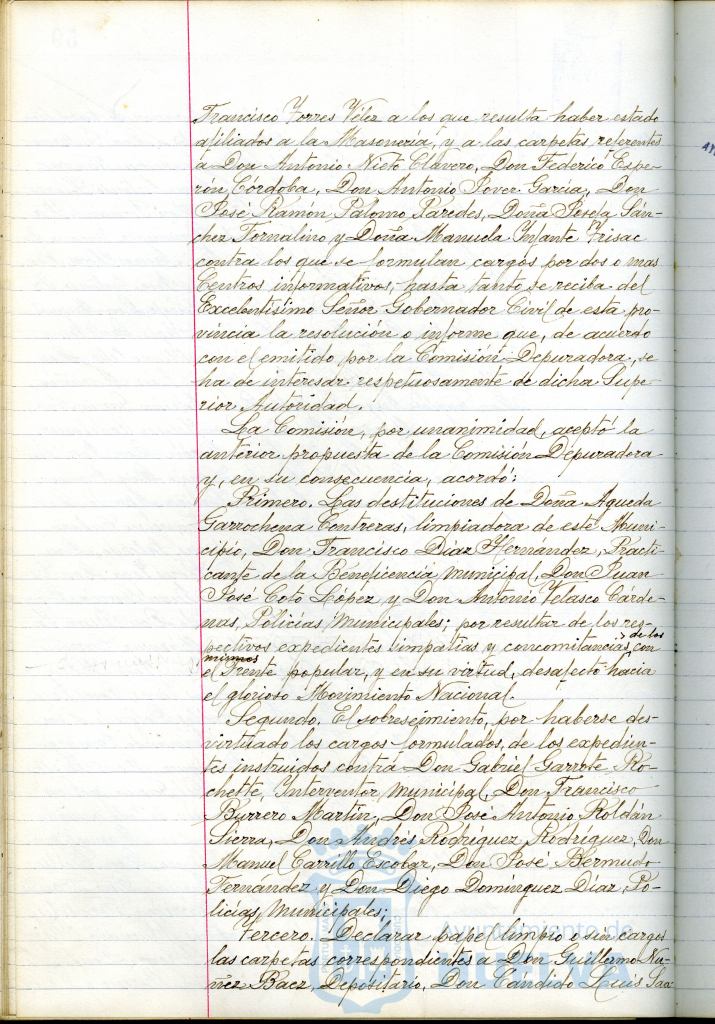 Francisco Torres Vélez a los que resulta haber estado
afiliados a la Masonería, y a las carpetas referentes
a Don Antonio Nieto Clavero, Don Federico Espe-
rón Córdoba, Don Antonio Jover García, Don
José Ramón Palomo Paredes, Doña Josefa Sán-
chez Tornalino y Doña Manuela Infante Frisac
contra los que se formulan cargos por dos o mas
Centros informativos, hasta tanto se reciba del
Excelentísimo Señor Gobernador Civil de esta pro-
vincia la resolución o informe que, de acuerdo
con el emitido por la Comisión Depuradora, se
ha de interesar respetuosamente de dicha Supe-
rior Autoridad.
La Comisión, por unanimidad, aceptó la
anterior propuesta de la Comisión Depuradora
y, en su consecuencia, acordó:
Primero. Las destituciones de Doña Agueda
Garrochena Contreras, limpiadora de este Muni-
cipio, Don Francisco Díaz Hernández, Practi-
cante de la Beneficencia municipal, Don Juan
José Coto López y Don Antonio Velasco Cárde-
nas, Policías Municipales; por resultar de los res-
pectivos expedientes simpatías y concomitancias de los mismos con
el Frente popular, y en su virtud, desafecto hacia
el glorioso Movimiento Nacional.
Segundo. El sobreseimiento, por haberse des-
virtuado los cargos formulados, de los expedien-
tes instruidos contra Don Gabriel Garrote Ro-
chette, Interventor municipal, Don Francisco
Burrero Martín, Don José Antonio Roldán
Sierra, Don Andrés Rodríguez Rodríguez, Don
Manuel Carrillo Escobar, Don José Bermudo
Fernandez y Don Diego Domínguez Díaz, Po-
licías Municipales;
Tercero. Declarar papel limpio o sin cargos
las carpetas correspondientes a Don Guillermo Nu-
ñez Baez, Depositario, Don Candido Luis Saa
Ayuntamiento de
HUELVA